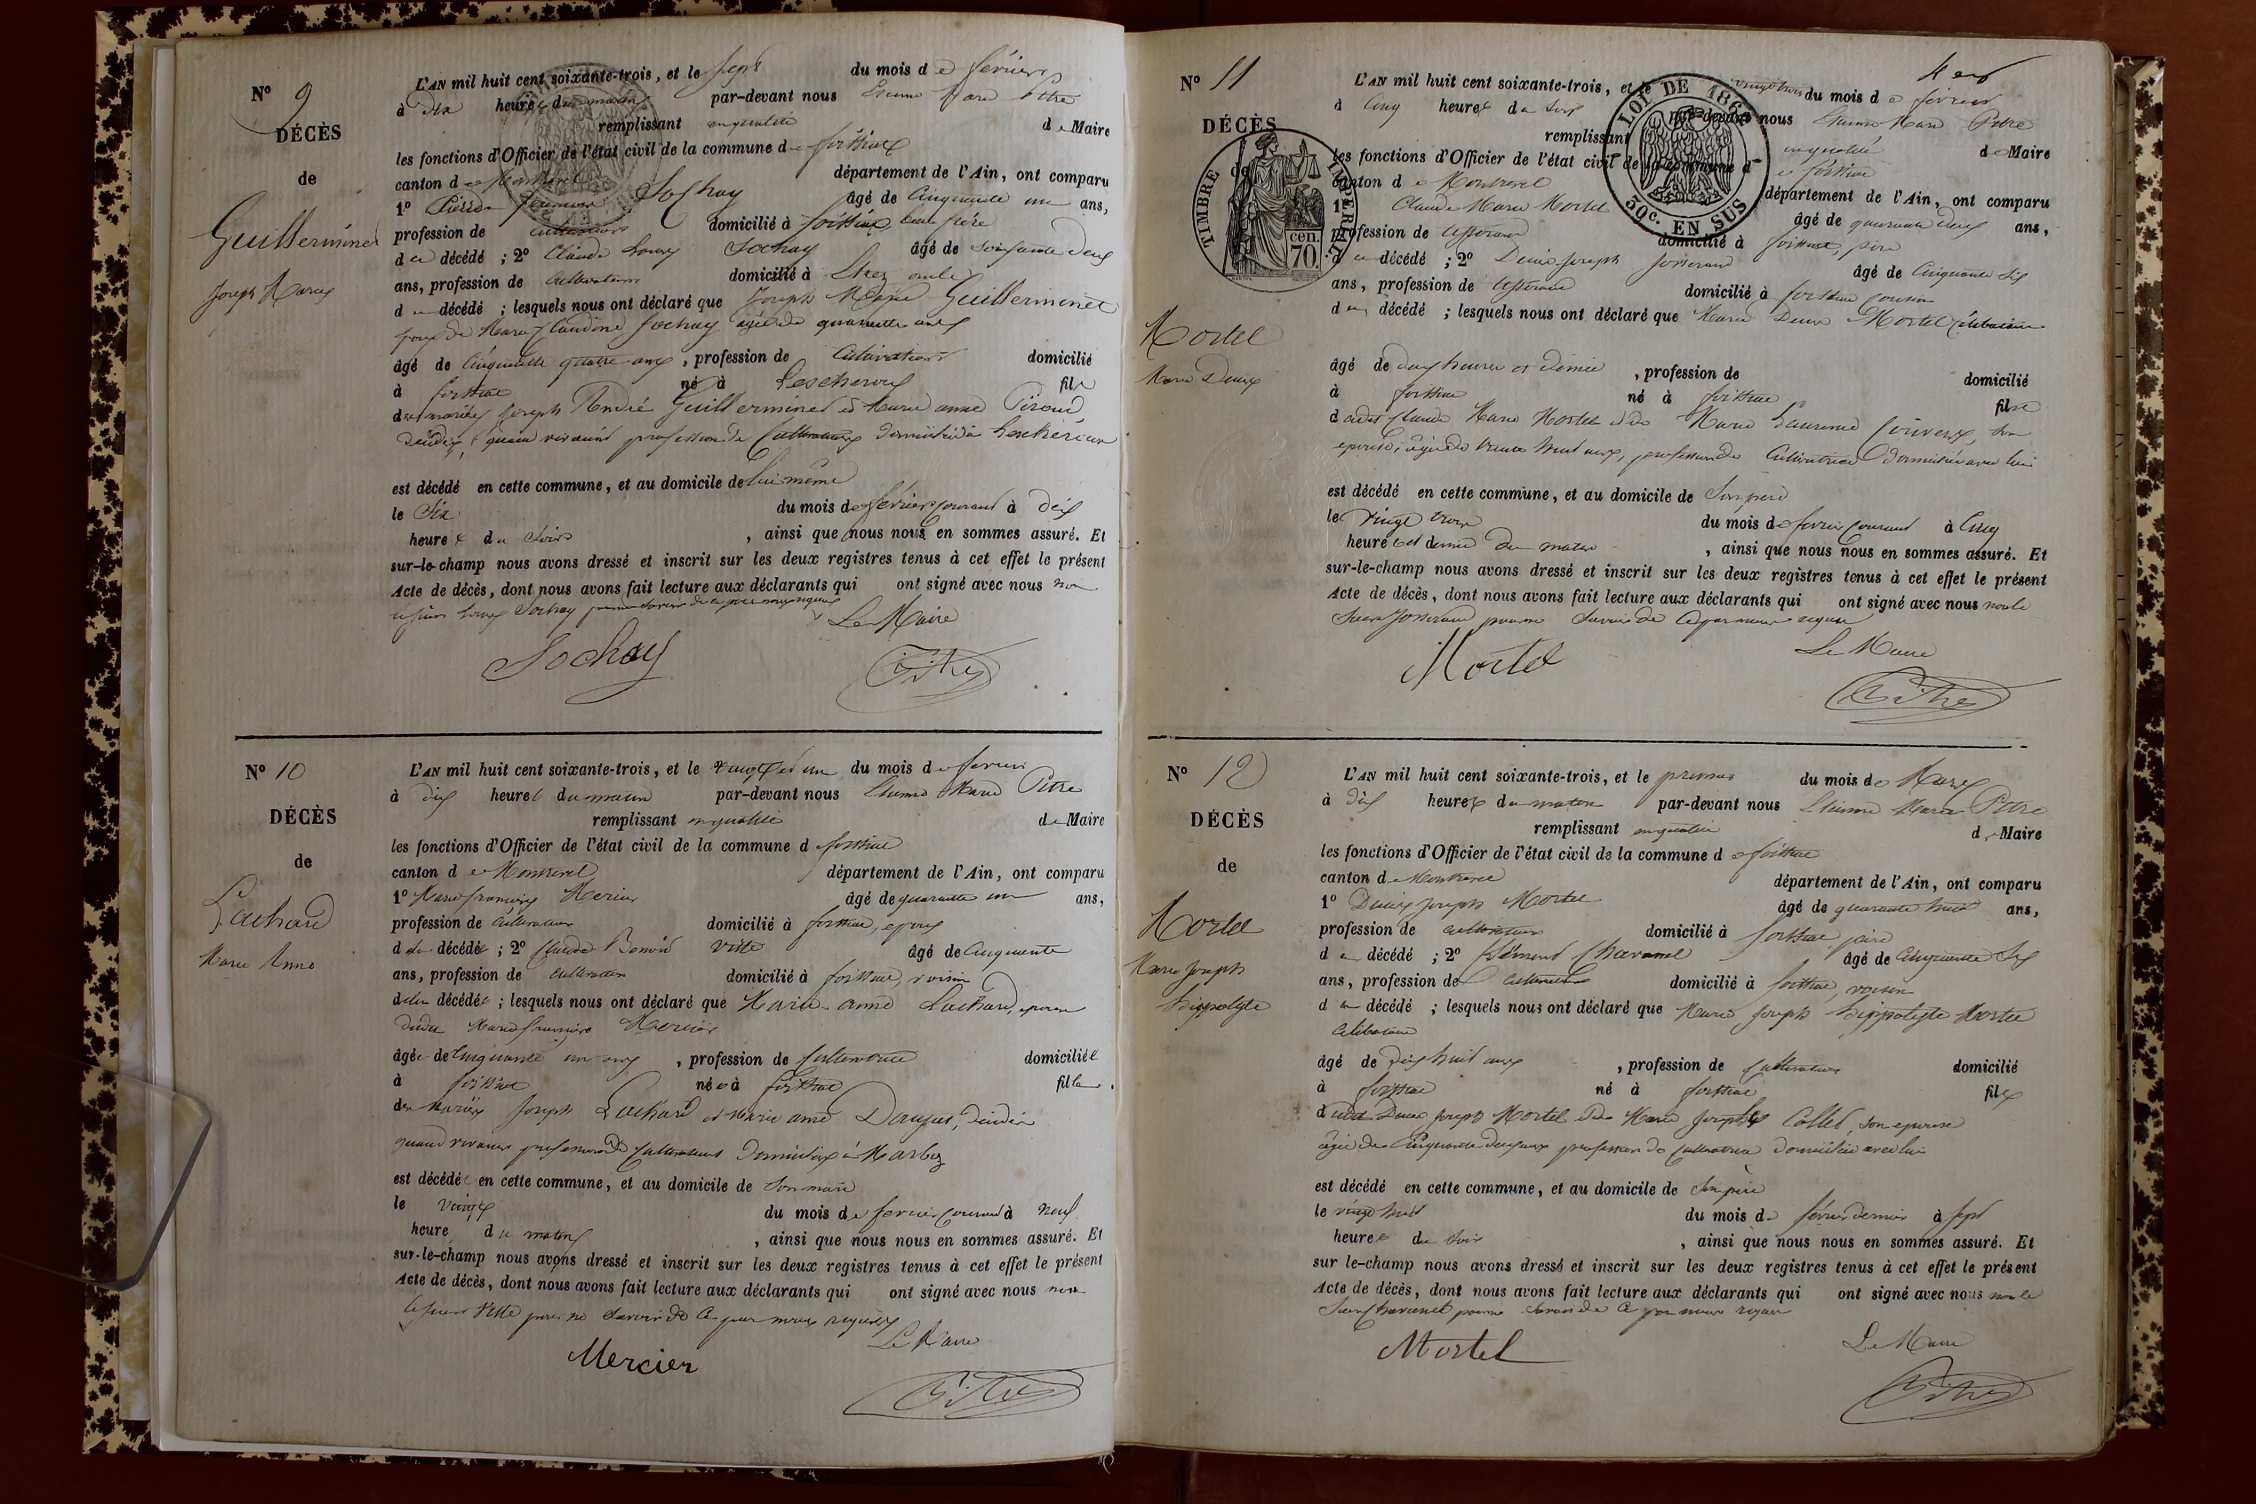 N° 9
DÉCÈS
de
Guillerminet
Joseph Marie
L'AN mil huit cent soixante-trois, et le sept du mois de février
à dix heures du matin par-devant nous Etienne Marie Pitre
remplissant en qualité de Maire
les fonctions d'Officier de l'état civil de la commune de foissiat
canton de Montrevel département de l'Ain, ont comparu
1° Pierre Sochay âgé de Cinquante un ans,
profession de cultivateur domicilié à foissiat beau frère
du décédé ; 2° Claude Louis Sochay âgé de soixante deux
ans, profession de cultivateur domicilié à oncle
d décédé ; lesquels nous ont déclaré que Joseph Marie Guillerminet
époux de Marie Claudine Sochay âgée de quarante ans
âgé de Cinquante quatre ans, profession de Cultivateur domicilié
à foissiat né à Lescheroux fils
des mariés Joseph André Guillerminet et Marie anne Piroud
décédés, quand vivaient profession de Cultivateurs domiciliés à Lescheroux
est décédé en cette commune, et au domicile de lui même
le six du mois de février courant à dix
heures du soir , ainsi que nous nous en sommes assuré. Et
sur-le-champ nous avons dressé et inscrit sur les deux registres tenus à cet effet le présent
Acte de décès, dont nous avons fait lecture aux déclarants qui ont signé avec nous non
le sieur Louis Sochay pour ne savoir de ce par nous requis
Le Maire
Sochay
Pitre
N° 10
DÉCÈS
de
Lachard
Marie Anne
L'AN mil huit cent soixante-trois, et le vingt et un du mois de fevrier
à dix heures du matin par-devant nous Etienne Marie Pitre
remplissant en qualité de Maire
les fonctions d'Officier de l'état civil de la commune d foissiat
canton de Montrevel département de l'Ain, ont comparu
1° Marie françois Mercier âgé de quarante un ans,
profession de cultivateur domicilié à foissiat, époux
de la décédée ; 2° Claude Benoit Vitte âgé de Cinquante
ans, profession de cultivateur domicilié à foissiat, voisin
de la décédée ; lesquels nous ont déclaré que Marie anne Lachard, epouse
dudit Marie françois Mercier
âgée de Cinquante un ans, profession de Cultivatrice domiciliée
à foissiat née à foissiat fille
des mariés Joseph Lachard et Marie anne
quand vivaient profession de Cultivateurs domiciliés à Marboz
est décédée en cette commune, et au domicile de son mari
le vingt du mois de fevrier courant à neuf
heures du matin , ainsi que nous nous en sommes assuré. Et
sur-le-champ nous avons dressé et inscrit sur les deux registres tenus à cet effet le présent
Acte de décès, dont nous avons fait lecture aux déclarants qui ont signé avec nous non
le sieur Vitte pour ne savoir de ce par nous requis
Le Maire
Mercier
Pitre
N° 11
DÉCÈS
de
TIMBRE IMPERIAL
70 cen.
LOI DE 1862
50c. EN SUS
Mortel
Marie Denis
L'AN mil huit cent soixante-trois, et le vingt trois du mois de février
à cinq heures du soir par-devant nous Etienne Marie Pitre
remplissant en qualité de Maire
les fonctions d'Officier de l'état civil de la commune de foissiat
canton de Montrevel département de l'Ain, ont comparu
1° Claude Marie Mortel âgé de quarante deux ans,
profession de domicilié à foissiat, père
du décédé ; 2° Denis Joseph Josserand âgé de Cinquante six
ans, profession de domicilié à foissiat cousin
du décédé ; lesquels nous ont déclaré que Marie Denis Mortel célibataire
âgé de deux heures et demie , profession de domicilié
à foissiat né à foissiat fils
dudit Claude Marie Mortel et de Marie Laurence, son
epouse, âgée de trente huit ans, profession de Cultivatrice domiciliée avec lui
est décédé en cette commune, et au domicile de son père
le vingt trois du mois de fevrier courant à cinq
heures et demie du matin , ainsi que nous nous en sommes assuré. Et
sur-le-champ nous avons dressé et inscrit sur les deux registres tenus à cet effet le présent
Acte de décès, dont nous avons fait lecture aux déclarants qui ont signé avec nous non le
sieur Josserand pour ne savoir de ce par nous requis
Le Maire
Mortel
Pitre
N° 12
DÉCÈS
de
Mortel
Marie Joseph
hippolyte
L'AN mil huit cent soixante-trois, et le premier du mois de Mars
à dix heures du matin par-devant nous Etienne Marie Pitre
remplissant en qualité de Maire
les fonctions d'Officier de l'état civil de la commune de foissiat
canton de Montrevel département de l'Ain, ont comparu
1° Denis Joseph Mortel âgé de quarante huit ans,
profession de cultivateur domicilié à foissiat père
du décédé ; 2° Clément Charanel âgé de Cinquante six
ans, profession de cultivateur domicilié à foissiat, voisin
du décédé ; lesquels nous ont déclaré que Marie Joseph hippolyte Mortel
celibataire
âgé de dix huit ans , profession de Cultivateur domicilié
à foissiat né à foissiat fils
dudit Denis Joseph Mortel et de Marie Josephte Collet, son epouse
âgée de Cinquante deux ans profession de Cultivatrice domiciliée avec lui
est décédé en cette commune, et au domicile de son père
le vingt huit du mois de février dernier à sept
heures du soir , ainsi que nous nous en sommes assuré. Et
sur le-champ nous avons dressé et inscrit sur les deux registres tenus à cet effet le présent
Acte de décès, dont nous avons fait lecture aux déclarants qui ont signé avec nous non le
sieur Charanel pour ne savoir de ce par nous requis
Le Maire
Mortel
Pitre